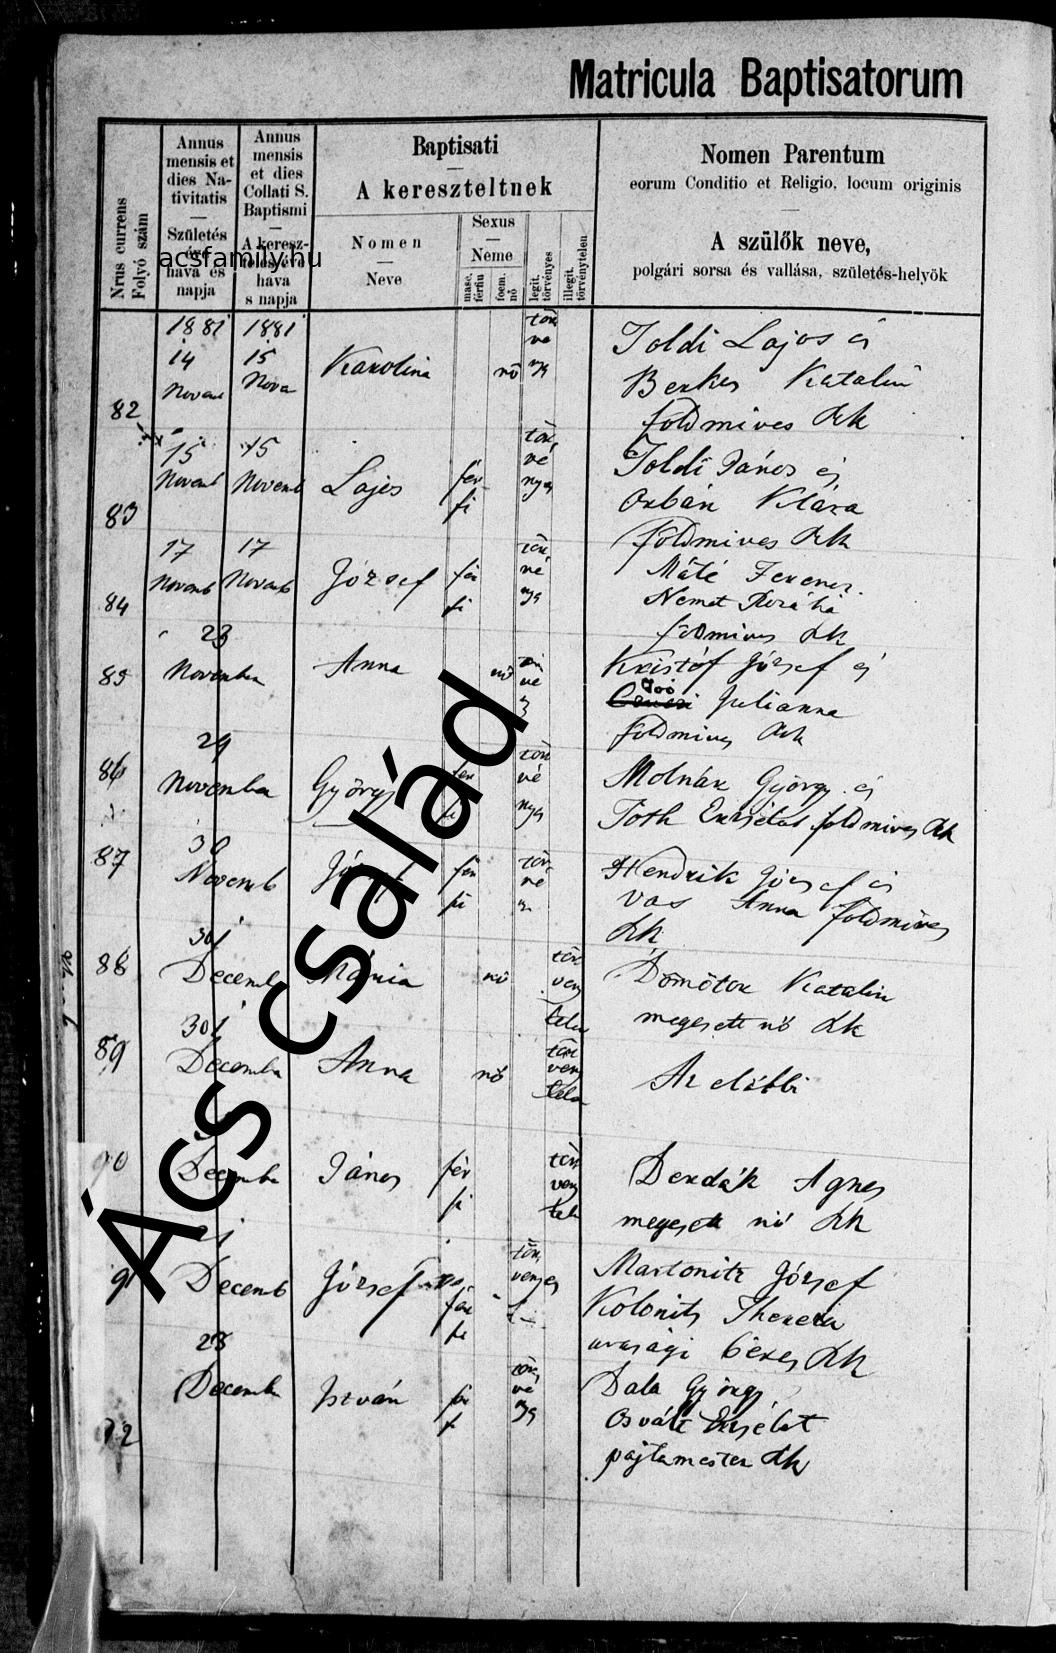 Matricula Baptisatorum
Nrus currens
Folyó szám
Annus
mensis et
dies Na-
tivitatis
Születés
hava és
napja
Annus
mensis
et dies
Collati S.
Baptismi
A keresz-
hava
s napja
acsfamily.hu
Baptisati
A kereszteltnek
Nomen
Neve
Sexus
Neme
masc.
férfiu
foem.
nő
legit.
törvényes
illegit.
törvénytelen
Nomen Parentum
eorum Conditio et Religio, locum originis
A szülők neve,
polgári sorsa és vallása, születés-helyök
1881 1881
14 15
82 Karolina nő
Toldi Lajos és
Berkes Katalin
földmives Rk
15 15
83 Novemb Novemb Lajos fér fi
Toldi János és
Orbán Klára
földmives Rk
17 17
84 Novemb Novemb József fér fi
Máté Ferencz
Nemet
földmives Rk
23
85 November Anna nő
Kristóf József és
Joó
Julianna
földmives Rk
29
86 November György
Molnár György és
Tóth Erzsébet földmives Rk
30
87 Novemb József
Hendrik József és
Vas Anna földmives
Rk
88 Decemb Mária nő
Dömötör Katalin
megesett nő Rk
89 Decemb Anna nő
Az előbbi
90 Decemb János fér fi
Derdák Agnes
megesett nő Rk
91 Decemb József
Martonitz József
Kolonits Therezia
urasági béres Rk
28
92 Decemb István
Dala György
Osvált Erzsébet
pajtamester Rk
Ács család